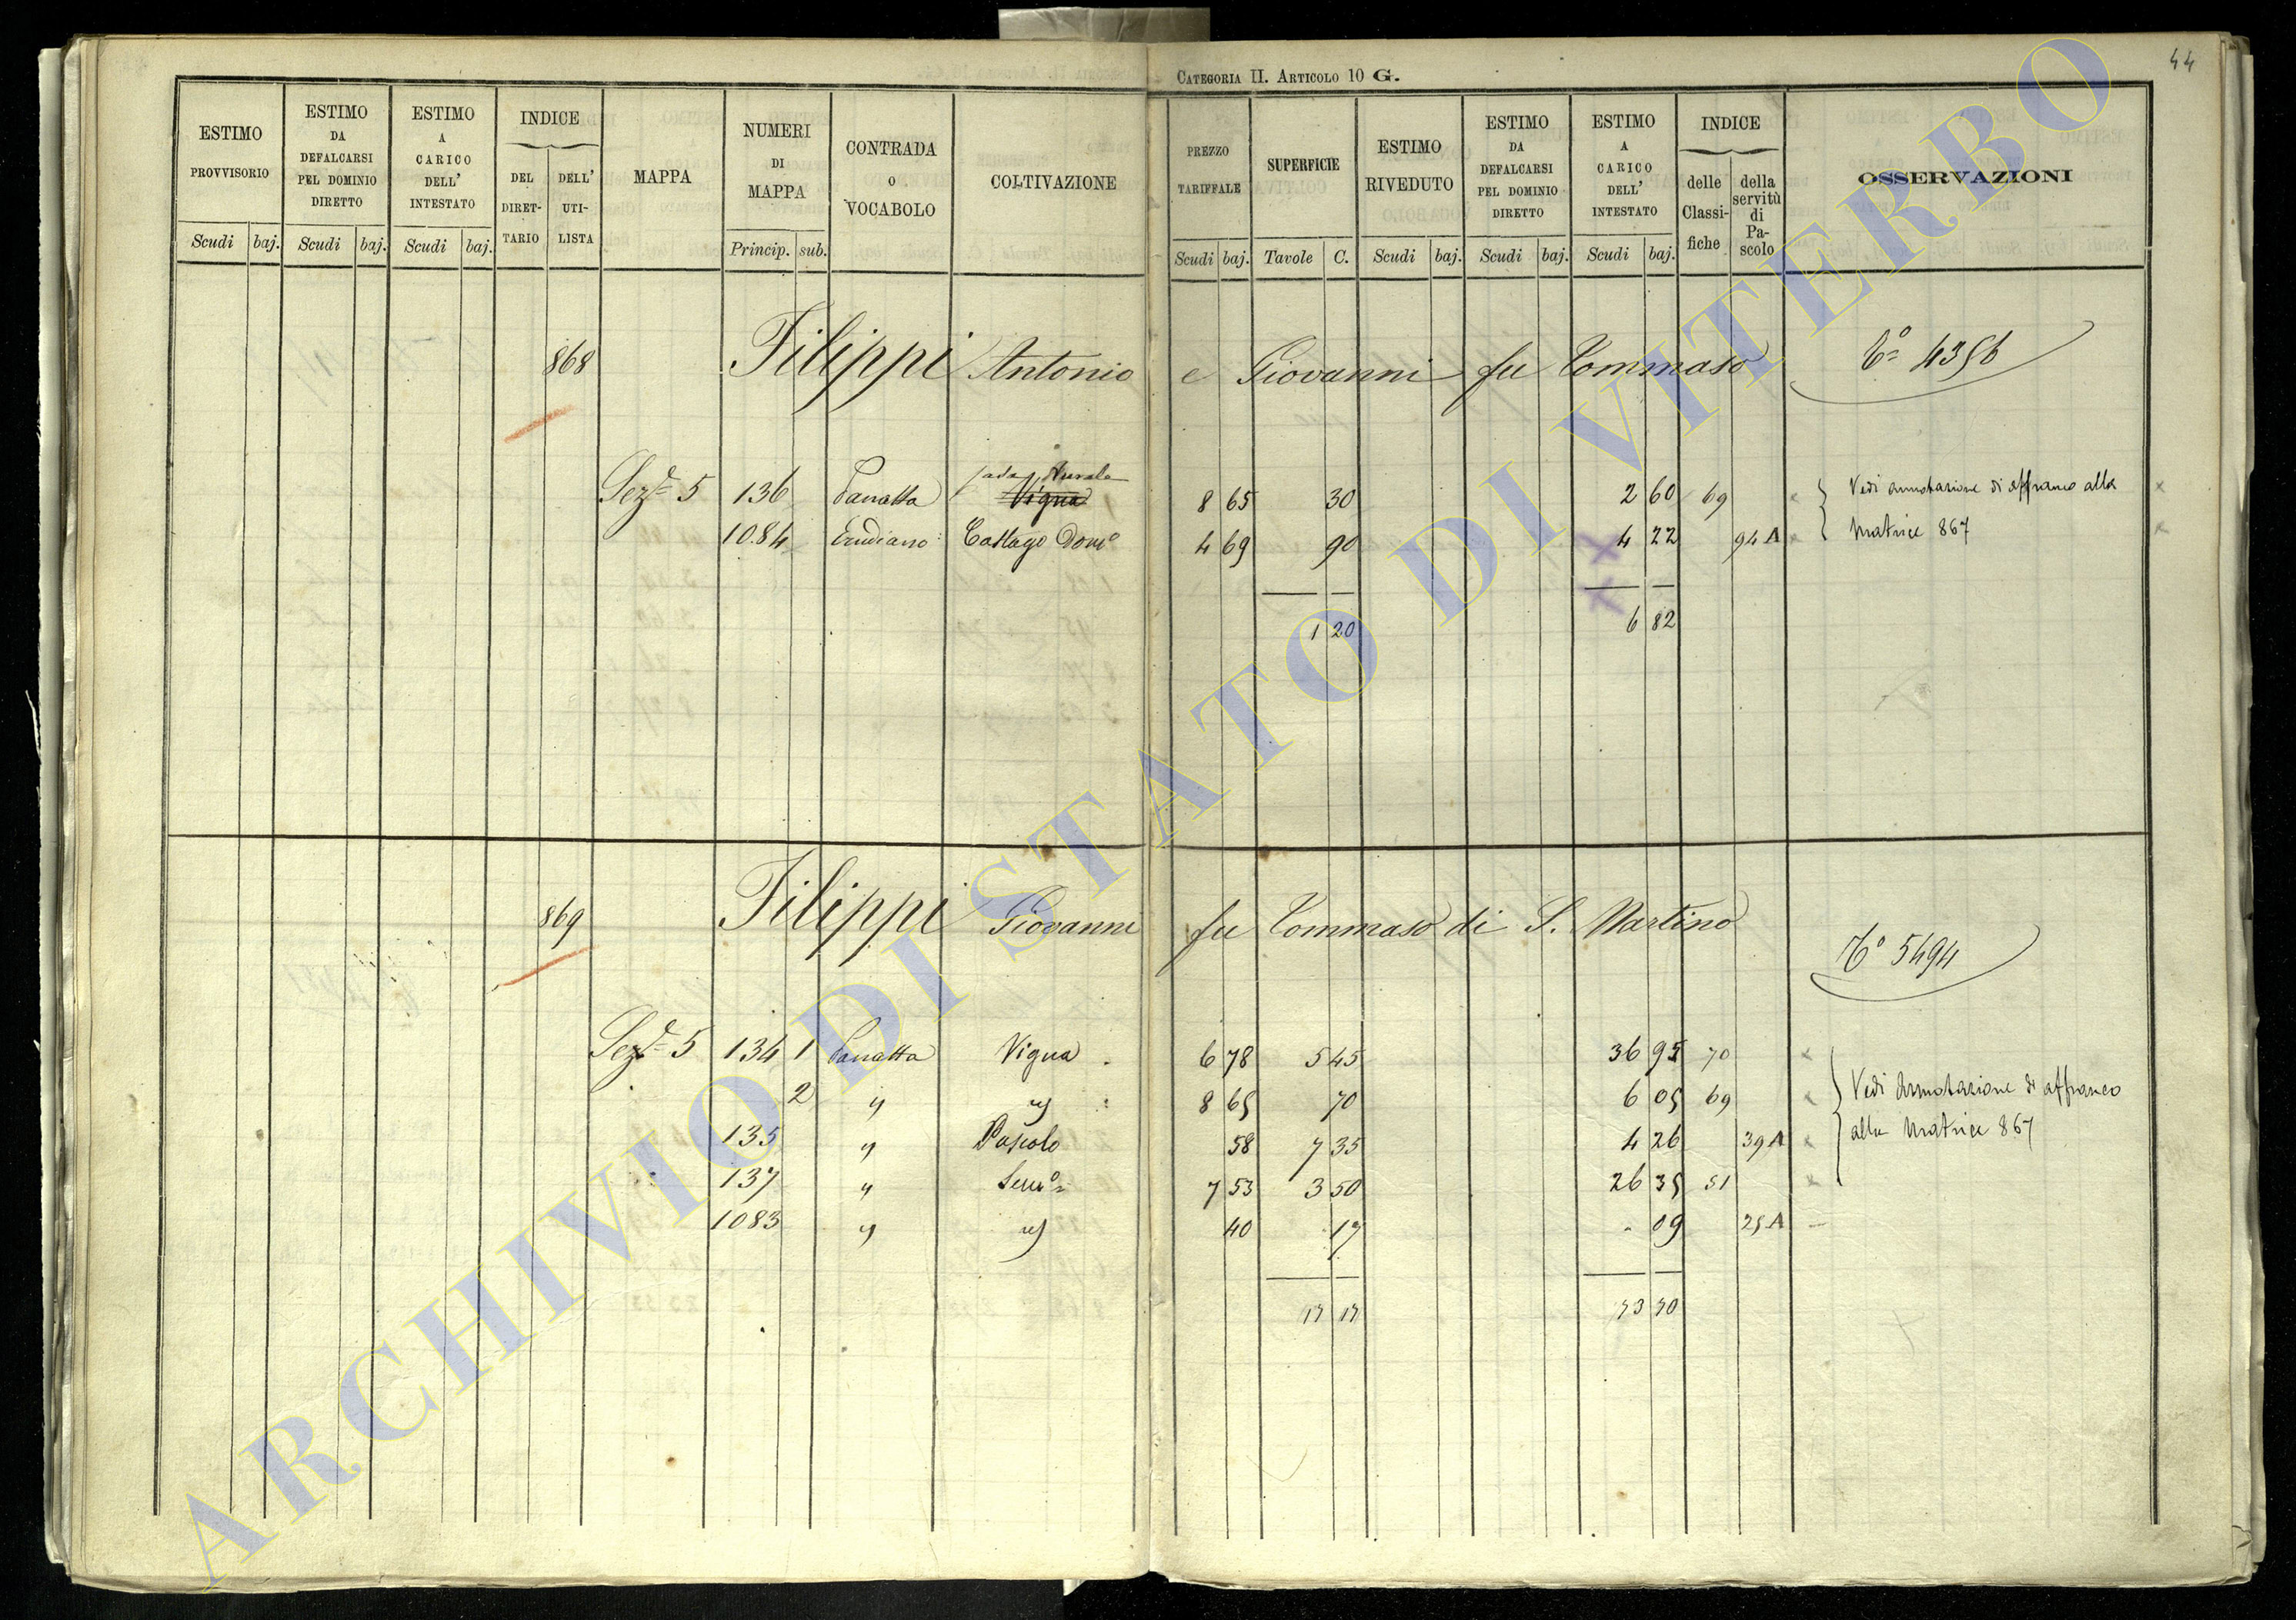 44
CATEGORIA II. ARTICOLO 10 G.
ESTIMO PROVVISORIO Scudi baj.
ESTIMO DA DEFALCARSI PEL DOMINIO DIRETTO Scudi baj.
ESTIMO A CARICO DELL' INTESTATO Scudi baj.
INDICE DEL DIRET-TARIO DELL' UTI-LISTA
MAPPA
NUMERI DI MAPPA Princip. sub.
CONTRADA O VOCABOLO
COLTIVAZIONE
PREZZO TARIFFALE Scudi baj.
SUPERFICIE Tavole C.
ESTIMO RIVEDUTO Scudi baj.
ESTIMO DA DEFALCARSI PEL DOMINIO DIRETTO Scudi baj.
ESTIMO A CARICO DELL' INTESTATO Scudi baj.
INDICE delle Classi-fiche della servitù di Pa-scolo
OSSERVAZIONI
868 Filippi Antonio e Giovanni fu Tommaso Tº 4356
Sezᵉ 5 136 Panatta Vigna 8 65 30 2 60 69 Vedi annotazione di affranco alla
1084 Castagº Domº 4 69 90 4 22 94 A Matrice 867
1 20 6 82
869 Filippi Giovanni fu Tommaso di S. Martino
Tº 5494
Sezᵉ 5 134 1 Panatta Vigna 6 78 5 45 36 95 70
2 " " 8 65 70 6 05 69 Vedi Annotazione di affranco
135 " Pascolo 58 7 35 4 26 39 A alla Matrice 867
137 " Semº 7 53 3 50 26 35 51
1083 " " 40 17 09 25 A
17 17 73 70
ARCHIVIO DI STATO DI VITERBO